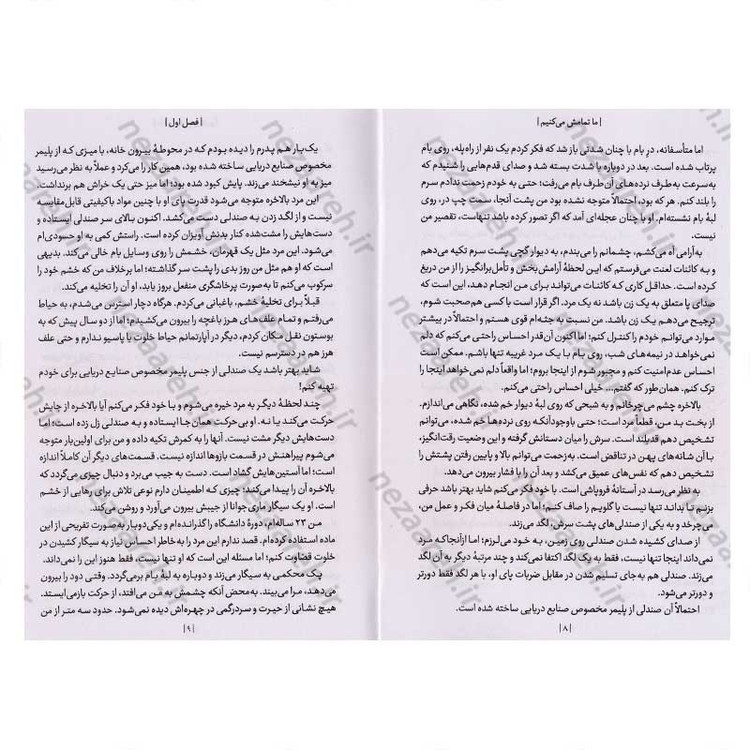 | ما تمامش می‌کنیم |
اما متأسفانه، درِ بام با چنان شدتی باز شد که فکر کردم یک نفر از راه‌پله، روی بام
پرتاب شده است. بعد در دوباره با شدت بسته شد و صدای قدم‌هایی را شنیدم که
به‌سرعت به‌طرف نرده‌های آن‌طرف بام می‌رفت؛ حتی به خودم زحمت ندادم سرم
را بلند کنم. هر که بود، احتمالاً متوجه نشده بود من پشت آنجا، سمت چپ در، روی
لبهٔ بام نشسته‌ام. او با چنان عجله‌ای آمد که اگر تصور کرده باشد تنهاست، تقصیر من
نیست.
به‌آرامی آه می‌کشم، چشمانم را می‌بندم، به دیوار گچی پشت سرم تکیه می‌دهم
و به کائنات لعنت می‌فرستم که این لحظهٔ آرامش‌بخش و تأمل‌برانگیز را از من دریغ
کرده است. حداقل کاری که کائنات می‌تواند برای من انجام دهد، این است که
صدای پا متعلق به یک زن باشد نه یک مرد. اگر قرار است با کسی هم‌صحبت شوم،
ترجیح می‌دهم یک زن باشد. من نسبت به جثه‌ام قوی هستم و احتمالاً در بیشتر
موارد می‌توانم خودم را کنترل کنم؛ اما اکنون آن‌قدر احساس راحتی می‌کنم که دلم
نمی‌خواهد در نیمه‌های شب، روی بام با یک مرد غریبه تنها باشم. ممکن است
احساس عدم‌امنیت کنم و مجبور شوم از اینجا بروم؛ اما واقعاً دلم نمی‌خواهد اینجا را
ترک کنم. همان‌طور که گفتم... خیلی احساس راحتی می‌کنم.
بالاخره چشم می‌چرخانم و به شبحی که روی لبهٔ دیوار خم شده، نگاهی می‌اندازم.
از بخت بد من، قطعاً مرد است؛ حتی باوجودآنکه روی نرده‌ها خم شده، می‌توانم
تشخیص دهم قدبلند است. سرش را میان دستانش گرفته و این وضعیت رقت‌انگیز،
با آن شانه‌های پهن در تناقض است. به‌زحمت می‌توانم بالا و پایین رفتن پشتش را
تشخیص دهم که نفس‌های عمیق می‌کشد و بعد آن را با فشار بیرون می‌دهد.
به نظر می‌رسد در آستانهٔ فروپاشی است. با خود فکر می‌کنم شاید بهتر باشد حرفی
بزنم تا بداند تنها نیست یا گلویم را صاف کنم؛ اما در فاصلهٔ میان فکر و عمل من،
می‌چرخد و به یکی از صندلی‌های پشت سرش لگد می‌زند.
از صدای کشیده شدن صندلی روی زمین، به خود می‌لرزم؛ اما ازآنجاکه مرد
نمی‌داند اینجا تنها نیست، فقط به یک لگد اکتفا نمی‌کند و چند مرتبهٔ دیگر به آن لگد
می‌زند. صندلی هم به‌جای تسلیم شدن در مقابل ضربات پای او، با هر لگد فقط دورتر
و دورتر می‌شود.
احتمالاً آن صندلی از پلیمر مخصوص صنایع دریایی ساخته شده است.
| ۸ |
| فصل اول |
یک‌بار هم پدرم را دیده بودم که در محوطهٔ بیرون خانه، با میزی که از پلیمر
مخصوص صنایع دریایی ساخته شده بود، همین کار را می‌کرد و عملاً به نظر می‌رسید
میز به او نیشخند می‌زند. پایش کبود شده بود؛ اما میز حتی یک خراش هم برنداشت.
این مرد بالاخره متوجه می‌شود قدرت پای او با چنین مواد باکیفیتی قابل‌مقایسه
نیست و از لگد زدن به صندلی دست می‌کشد. اکنون بالای سر صندلی ایستاده و
دست‌هایش را مشت‌شده کنار بدنش آویزان کرده است. راستش کمی به او حسودی‌ام
می‌شود. این مرد مثل یک قهرمان، خشمش را روی وسایل بام خالی می‌کند. بدیهی
است که او هم مثل من روز بدی را پشت سر گذاشته؛ اما برخلاف من که خشم خود را
سرکوب می‌کنم تا به‌صورت پرخاشگری منفعل بروز یابد، او آن را تخلیه می‌کند.
قبلاً برای تخلیهٔ خشم، باغبانی می‌کردم. هرگاه دچار استرس می‌شدم، به حیاط
می‌رفتم و تمام علف‌های هرز باغچه را بیرون می‌کشیدم؛ اما از دو سال پیش که به
بوستون نقل مکان کردم، دیگر در آپارتمانم حیاط خلوت یا پاسیو ندارم و حتی علف
هرز هم در دسترسم نیست.
شاید بهتر باشد یک صندلی از جنس پلیمر مخصوص صنایع دریایی برای خودم
تهیه کنم!
چند لحظهٔ دیگر به مرد خیره می‌شوم و با خود فکر می‌کنم آیا بالاخره از جایش
حرکت می‌کند یا نه. او بی‌حرکت همان‌جا ایستاده و به صندلی زل زده است؛ اما
دست‌هایش دیگر مشت نیست. آنها را به کمرش تکیه داده و من برای اولین‌بار متوجه
می‌شوم پیراهنش در قسمت بازوها اندازه نیست. قسمت‌های دیگر آن کاملاً اندازه
است؛ اما آستین‌هایش گشاد است. دست به جیب می‌برد و دنبال چیزی می‌گردد که
بالاخره آن را پیدا می‌کند؛ چیزی که اطمینان دارم نوعی تلاش برای رهایی از خشم
است. او یک سیگار ماری جوانا از جیبش بیرون می‌آورد و روشن می‌کند.
من ۲۳ ساله‌ام، دورهٔ دانشگاه را گذرانده‌ام و یکی‌دوبار به‌صورت تفریحی از این
ماده استفاده کرده‌ام. قصد ندارم این مرد را به‌خاطر احساس نیاز به سیگار کشیدن در
خلوت قضاوت کنم؛ اما مسئله این است که او تنها نیست، فقط هنوز این را نمی‌داند.
پک محکمی به سیگار می‌زند و دوباره به لبهٔ بام برمی‌گردد. وقتی دود را بیرون
می‌دهد، مرا می‌بیند. به‌محض آنکه چشمش به من می‌افتد، از حرکت بازمی‌ایستد.
هیچ نشانی از حیرت و سردرگمی در چهره‌اش دیده نمی‌شود. حدود سه متر از من
| ۹ |
nezaareh.ir